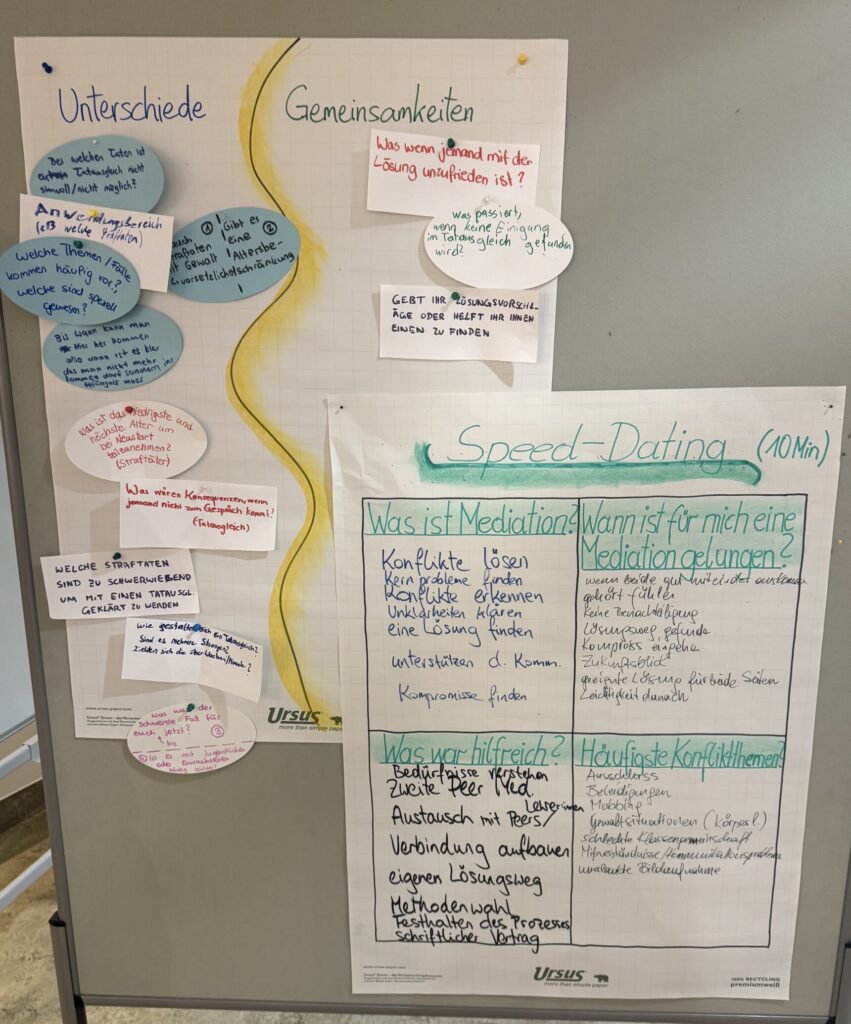 Unterschiede
Gemeinsamkeiten
Bei welchen Taten ist
Tatausgleich nicht
sinnvoll/nicht möglich?
Anwendungsbereich
(zB welche Straftaten)
auch
Straftaten
mit Gewalt
①
! Gibt es ②
! eine
! Altersbe-
schränkung
!
Welche Themen/Fälle
kommen häufig vor?,
welche sind speziell
gewesen?
Bis wann kann man
hier her kommen
also wann ist es klar
das man nicht mehr
kommen darf sondern ins
Gefängnis muss
Was ist das niedrigste und
höchste Alter um
bei Neustart
teilzunehmen?
(Straftäter)
Was wären Konsequenzen, wenn
jemand nicht zum Gespräch kommt?
(Tatausgleich)
WELCHE STRAFTATEN
SIND ZU SCHWERWIEGEND
UM MIT EINEN TATAUSGL.
GEKLÄRT ZU WERDEN
Wie gestaltet sich ein Tatausgleich?
Sind es mehrere
ziehen sich die über Wochen/Monate?
Was war der
schwerste Fall für
euch jetzt? ③
bis
Ist es mit Jugendlichen
oder Erwachsenen
Was wenn jemand mit der
Lösung unzufrieden ist?
Was passiert,
wenn keine Einigung
im Tatausgleich gefunden
wird?
GEBT IHR LÖSUNGSVORSCHL-
ÄGE ODER HELFT IHR IHNEN
EINEN ZU FINDEN
www.ursus-paper.com
Ursus
more than simple paper
Speed-Dating (10 Min)
Was ist Mediation?
Konflikte lösen
Kernprobleme finden
Konflikte erkennen
Unklarheiten klären
eine Lösung finden
unterstützen d. Komm.
Kompromisse finden
Wann ist für mich eine
Mediation gelungen?
wenn beide gut miteinander
gehört fühlen
keine Benachteiligung
Lösungsweg gefunden
Kompromiss eingehen
Zukunftsblick
geeignete Lösung für beide Seiten
Leichtigkeit danach
Was war hilfreich?
Bedürfnisse verstehen
Zweite Peer Med.
Lehrerinnen
Austausch mit Peers/
Verbindung aufbauen
eigenen Lösungsweg
Methodenwahl
Festhalten des Prozesses
schriftlicher Vertrag
Häufigste Konfliktthemen?
Ausschluss
Beleidigungen
Mobbing
Gewaltsituationen (körperl.)
schlechte Klassengemeinschaft
Missverständnisse/Kommunikationsprobleme
unerlaubte Bildaufnahme
www.ursus-paper.com
Ursus
more than simple paper
100% RECYCLING
premiumweiß